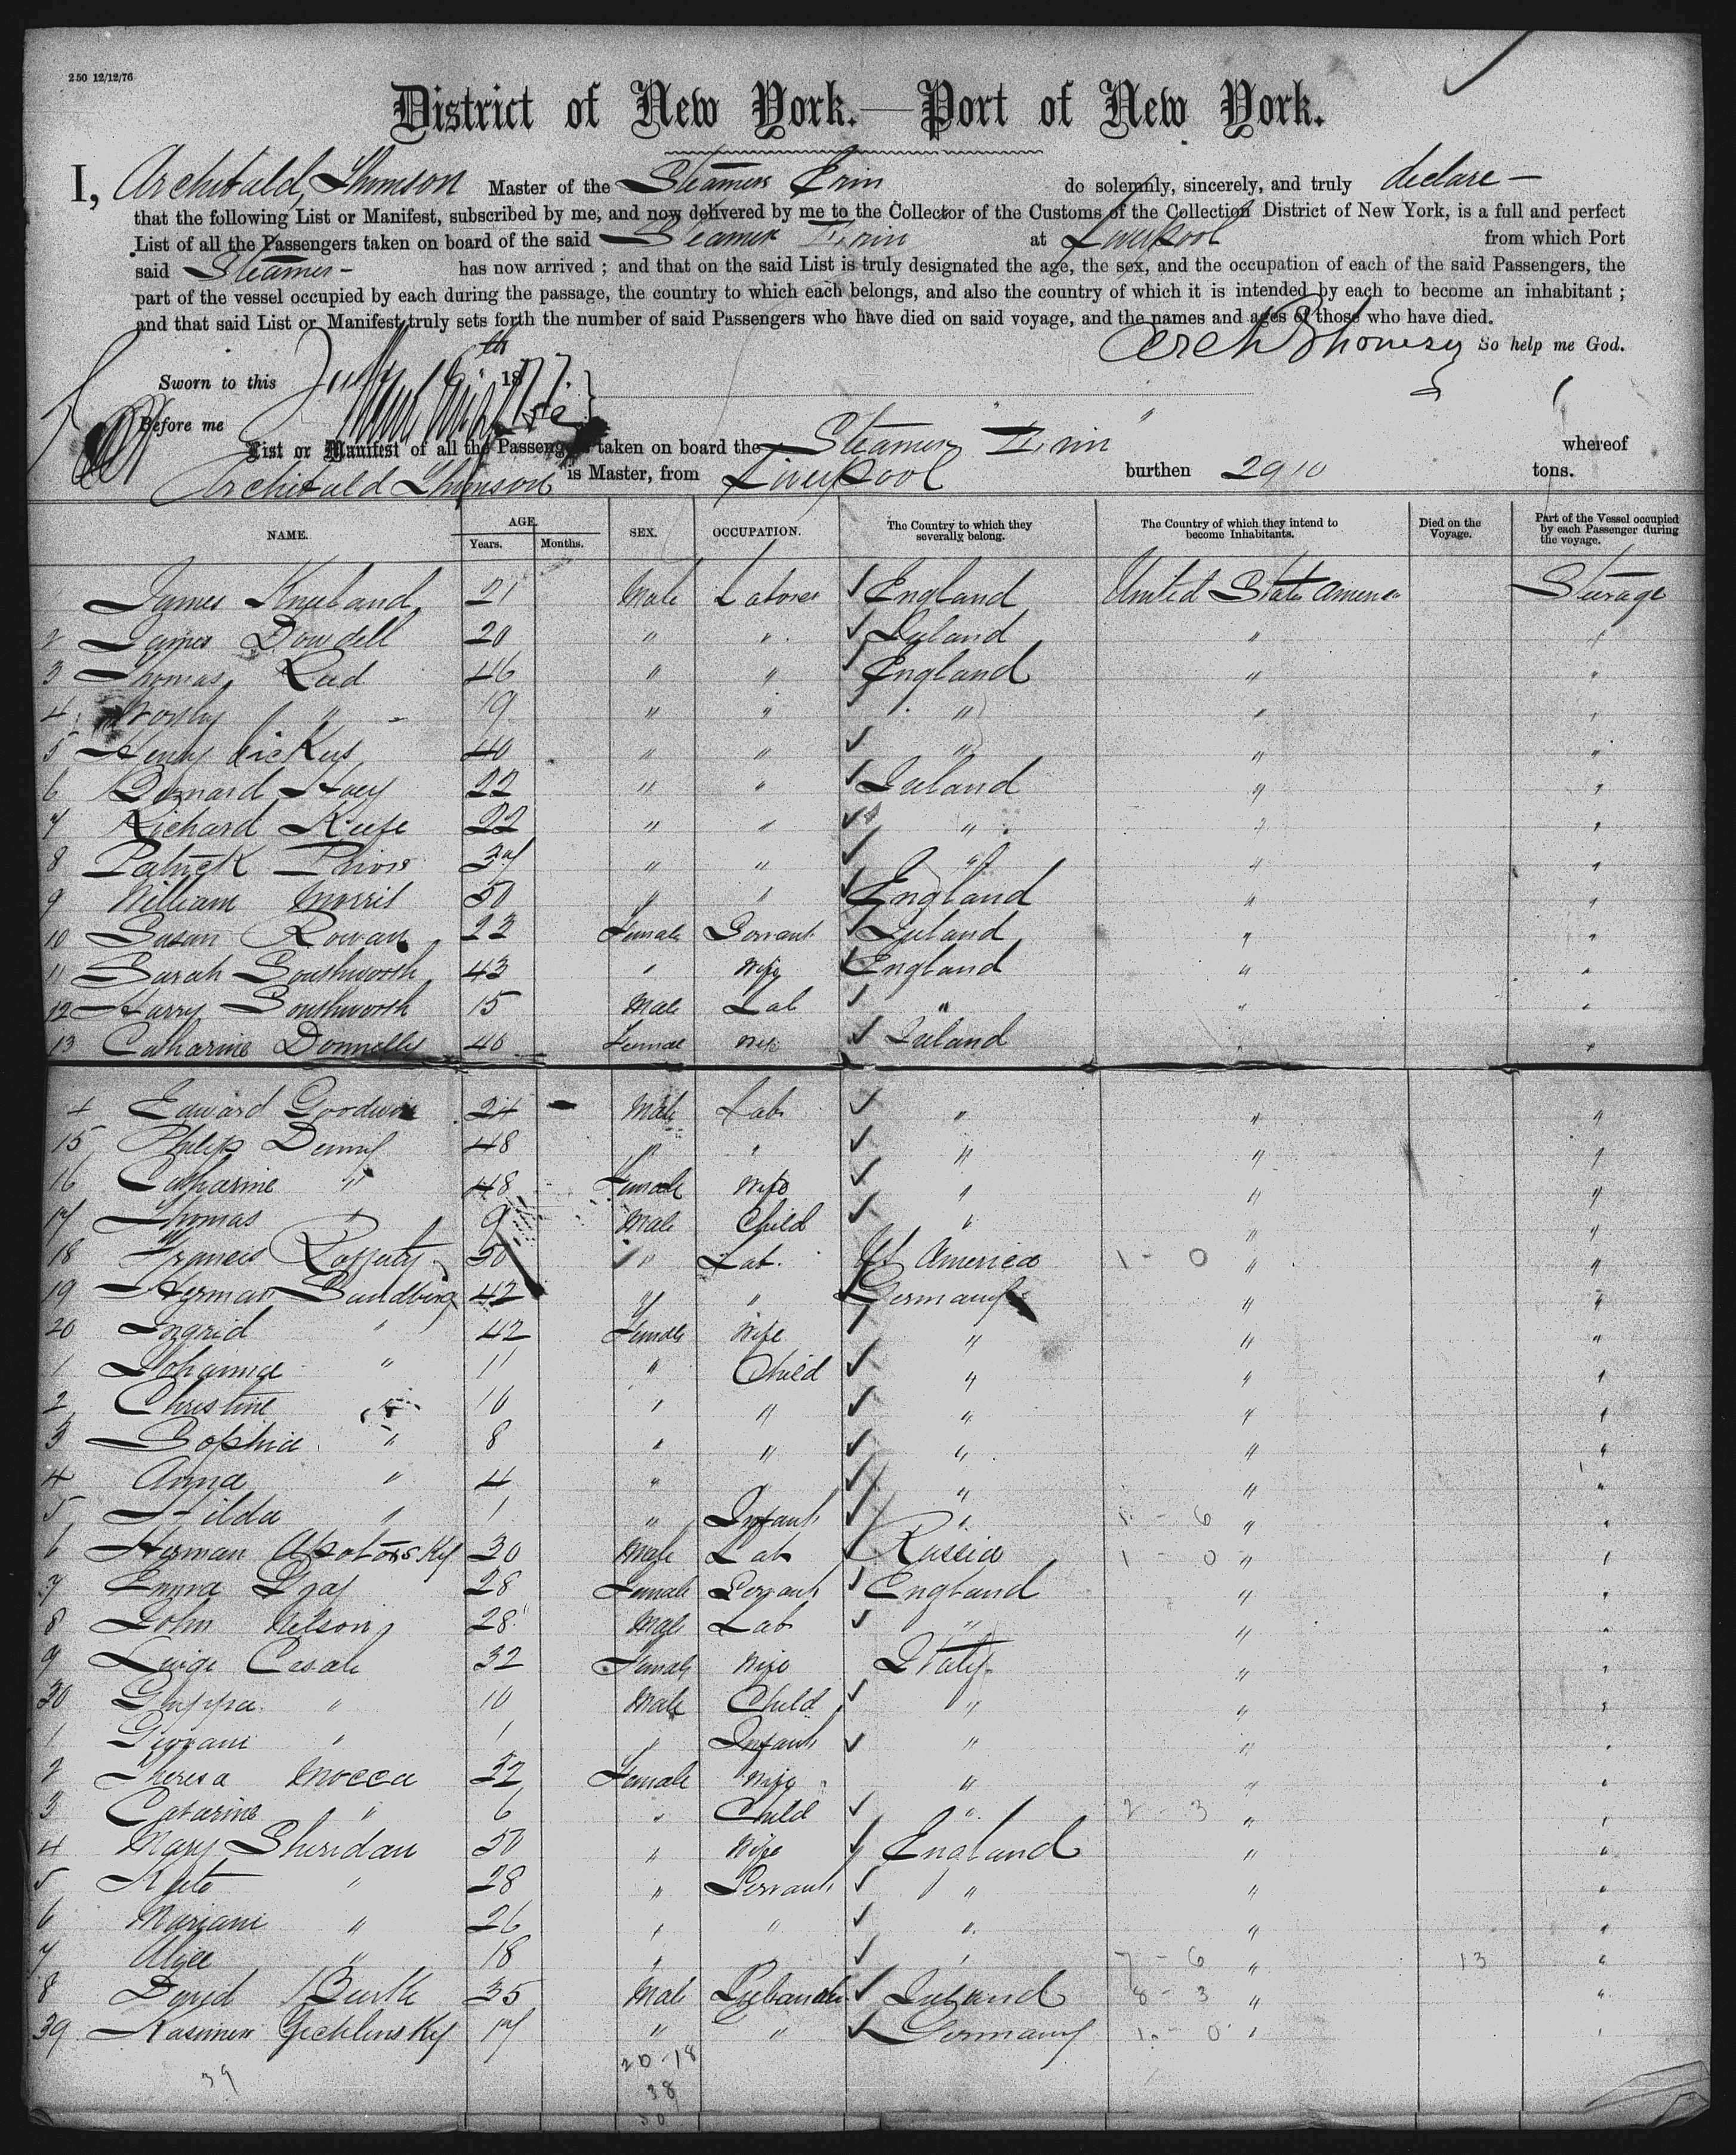 250 12/12/76
District of New York.—Port of New York.
I, Archibald Thomson Master of the Steamer Erin do solemnly, sincerely, and truly declare —
that the following List or Manifest, subscribed by me, and now delivered by me to the Collector of the Customs of the Collection District of New York, is a full and perfect
List of all the Passengers taken on board of the said Steamer Erin at Liverpool from which Port
said Steamer - has now arrived ; and that on the said List is truly designated the age, the sex, and the occupation of each of the said Passengers, the
part of the vessel occupied by each during the passage, the country to which each belongs, and also the country of which it is intended by each to become an inhabitant ;
and that said List or Manifest truly sets forth the number of said Passengers who have died on said voyage, and the names and ages of those who have died.
So help me God.
Sworn to this 1877.
Before me
List or Manifest of all the Passengers taken on board the Steamer Erin whereof
Archibald Thomson is Master, from Liverpool burthen 2910 tons.
NAME. AGE. Years. Months. SEX. OCCUPATION. The Country to which they severally belong. The Country of which they intend to become Inhabitants. Died on the Voyage. Part of the Vessel occupied by each Passenger during the voyage.
James Kneeland 21 Male Laborer England United States America Steerage
2 James Dowdell 20 " " Ireland " "
3 Thomas Reed 46 " " England " "
4 " 19 " " " " "
5 Henry 40 " " " " "
6 Bernard Hoey 22 " " Ireland " "
7 Richard Keefe 22 " " " " "
8 Patrick Prior 37 " " " " "
9 William Morris 50 " " England " "
10 Susan Rowan 22 Female Servant Ireland " "
11 Sarah Southworth 43 " Wife England " "
12 Harry Southworth 15 Male Lab " " "
13 Catharine Donnelly 40 Female Wife Ireland " "
4 Edward Goodwin 24 Male Lab " " "
15 Philip Denny 48 " " " " "
16 Catharine " 48 Female Wife " " "
17 Thomas " 9 Male Child " " "
18 Francis Rafferty 50 " Lab. America 1 - 0 " "
19 Herman Sundberg 42 " " Germany " "
20 Ingrid " 42 Female Wife " " "
1 Johanna " 11 " Child " " "
2 Christine " 10 " " " " "
3 Sophia " 8 " " " " "
4 Anna " 4 " " " " "
5 Hilda " 1 " Infant " 1 - 6 " "
6 Herman 30 Male Lab Russia 1 - 0 " "
7 Emma Gray 28 Female Servant England " "
8 John Nelson 28 Male Lab " " "
9 Luigi Casale 32 Female Wife Italy " "
30 " 10 Male Child " " "
1 Giovani " 1 " Infant " " "
2 Theresa Mocca 32 Female Wife " " "
3 Catarina " 6 " Child " 2 - 3 " "
4 Mary Sheridan 50 " Wife England " "
5 Kate " 28 " Servant " " "
6 Mariani " 26 " " " " "
7 Alice " 18 " " 7 - 6 " 13 "
8 David Burke 35 Male Ireland 8 - 3 " "
39 17 " " Germany 1 - 0 " "
39
20-18
38